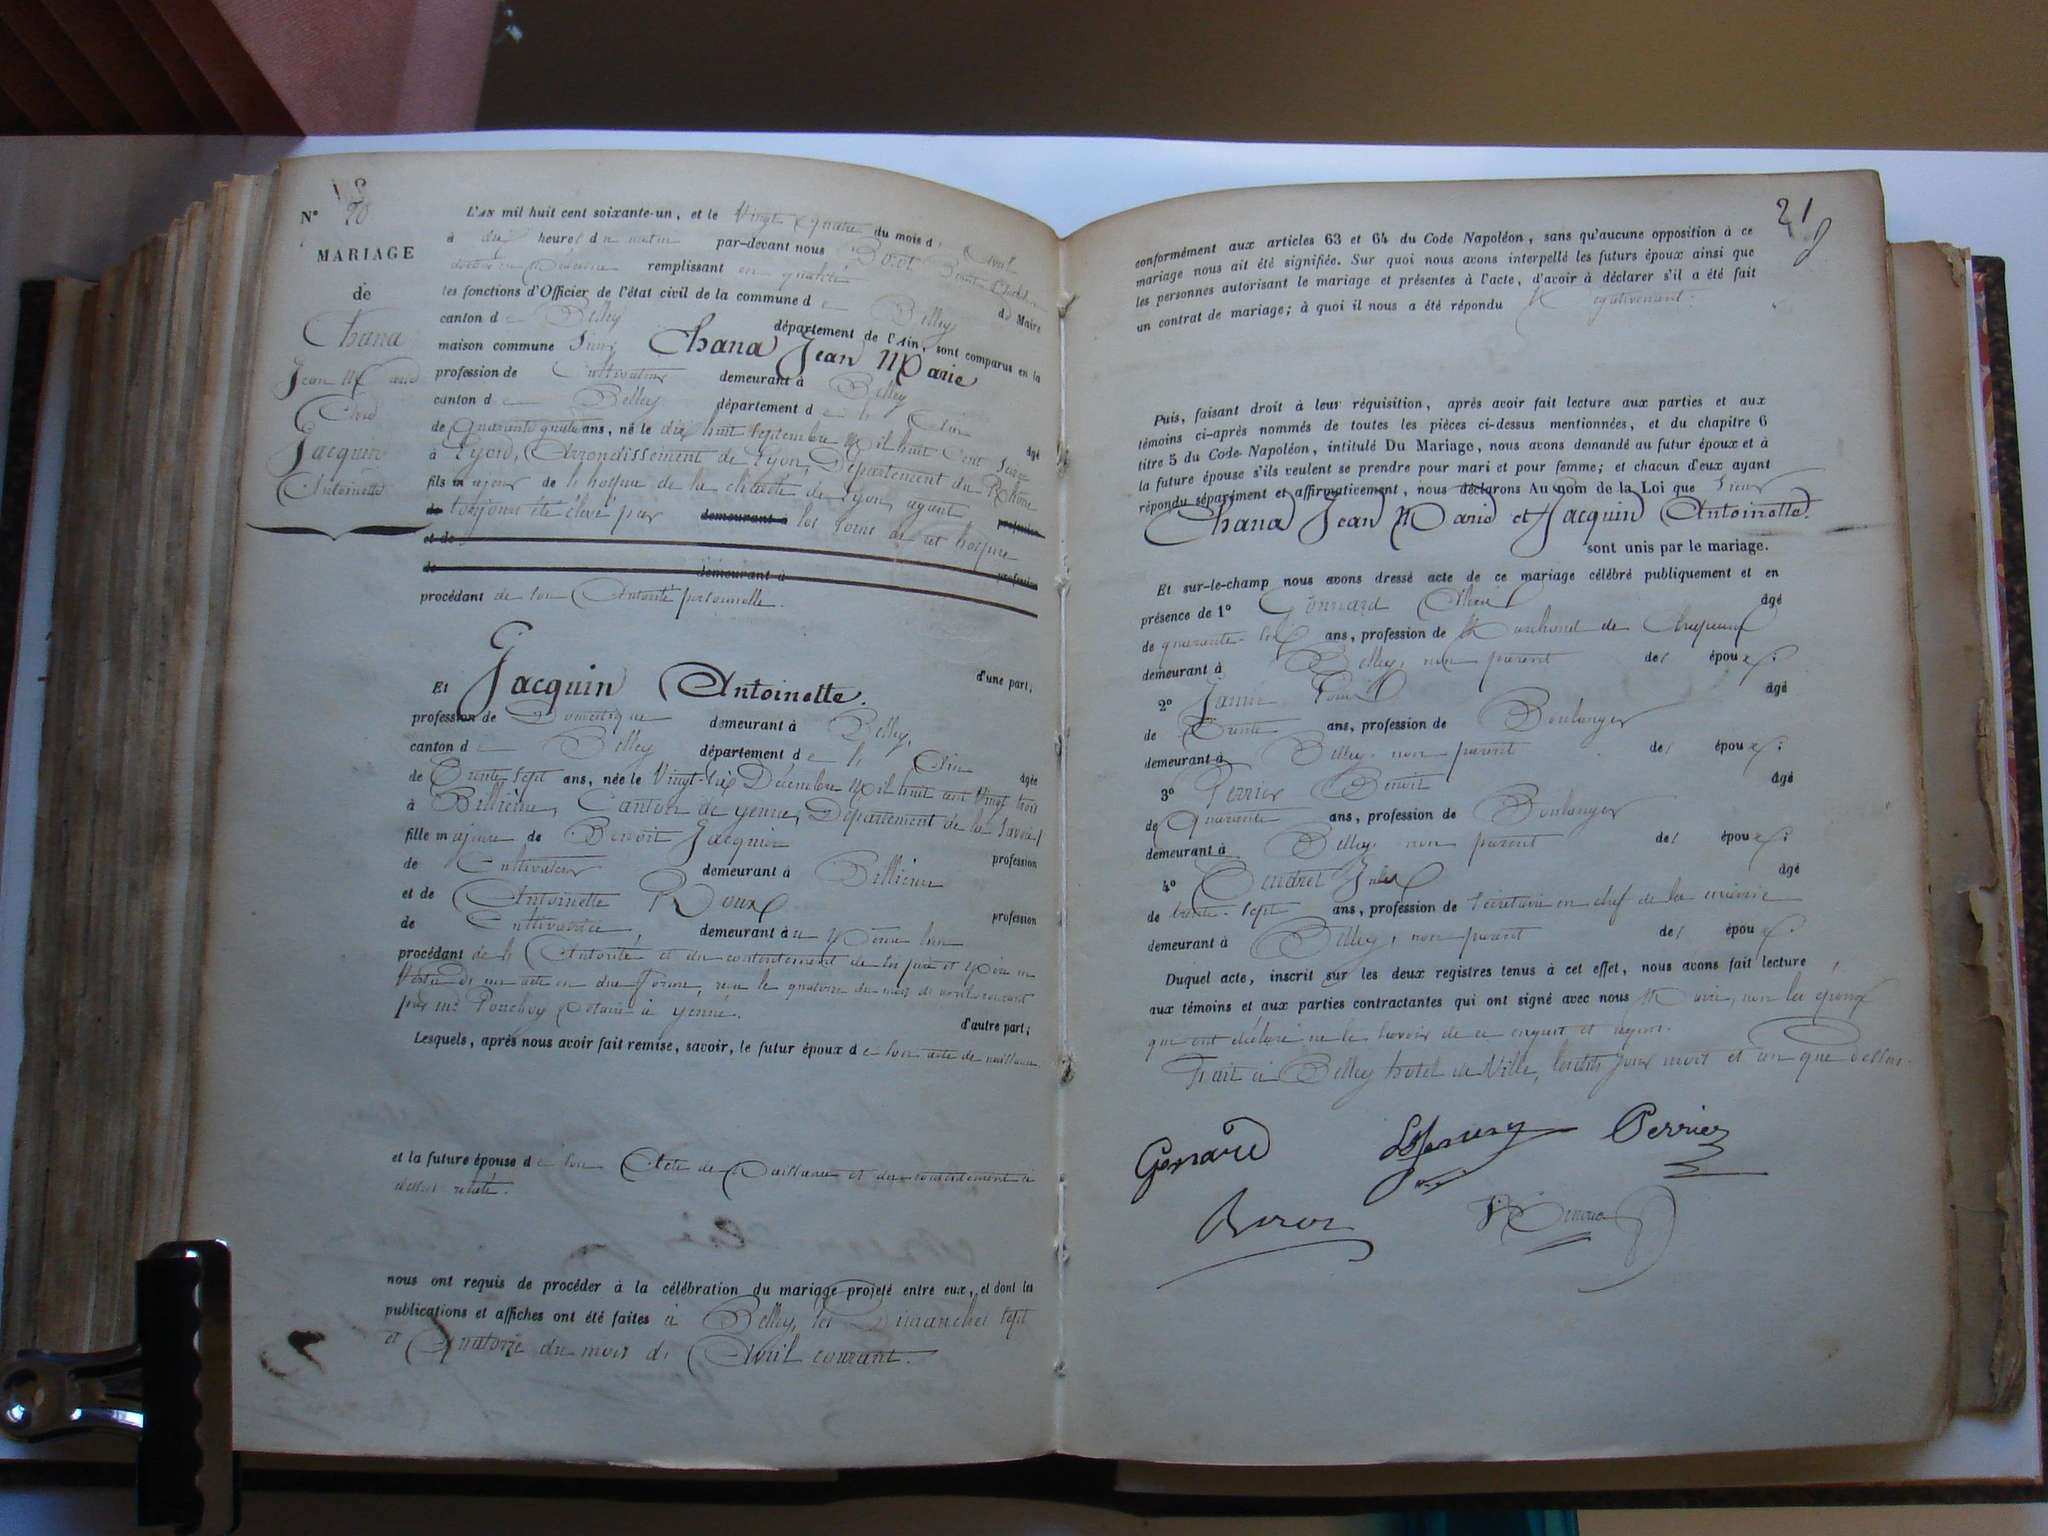 N° 20
MARIAGE
de
Chana
Jean Marie
Et
Jacquin
Antoinette
L'AN mil huit cent soixante-un, et le Vingt quatre du mois d' Avril
à dix heures du matin par-devant nous
docteur Médecine remplissant en qualité d Maire
les fonctions d'Officier de l'état civil de la commune de Belley
canton de Belley département de l'Ain, sont comparus en la
maison commune Sieur Chana Jean Marie
profession de Cultivateur demeurant à Belley
canton de Belley département de l' Ain âgé
de Quarante quatre ans, né le dix huit septembre Mil huit Cent Seize
à Lyon, Arrondissement de Lyon, Département du Rhône
fils majeur de l'hospice de la charité de Lyon, ayant profession
de toujours été élevé par demeurant à les soins de cet hospice
et de
de demeurant à profession
procédant de son Autorité personnelle.
d'une part;
Et Jacquin Antoinette.
profession de Domestique demeurant à Belley,
canton de Belley département de l' Ain âgée
de Trente sept ans, née le Vingt-six Décembre Mil huit cent Vingt trois
à Billième, Canton de Yenne, Département de la Savoie
fille majeure de Benoit Jacquin profession
de Cultivateur demeurant à Billième
et de Antoinette Roux profession
de Cultivatrice, demeurant à au Même lieu
procédant de l'Autorité et du consentement de ses père et Mère en
Vertu d'un acte en due forme, reçu le quatorze du mois d'avril courant
par me Notaire à Yenne. d'autre part;
Lesquels, après nous avoir fait remise, savoir, le futur époux de son acte de naissance
et la future épouse de son Acte de Naissance et du consentement ci
dessus relaté.
nous ont requis de procéder à la célébration du mariage projeté entre eux, et dont les
publications et affiches ont été faites à Belley, les Dimanches sept
et Quatorze du mois d'Avril courant.
21
conformément aux articles 63 et 64 du Code Napoléon, sans qu'aucune opposition à ce
mariage nous ait été signifiée. Sur quoi nous avons interpellé les futurs époux ainsi que
les personnes autorisant le mariage et présentes à l'acte, d'avoir à déclarer s'il a été fait
un contrat de mariage; à quoi il nous a été répondu Négativement.
Puis, faisant droit à leur réquisition, après avoir fait lecture aux parties et aux
témoins ci-après nommés de toutes les pièces ci-dessus mentionnées, et du chapitre 6
titre 5 du Code Napoléon, intitulé Du Mariage, nous avons demandé au futur époux et à
la future épouse s'ils veulent se prendre pour mari et pour femme; et chacun d'eux ayant
répondu séparément et affirmativement, nous déclarons Au nom de la Loi que Sieur
Chana Jean Marie et Jacquin Antoinette.
sont unis par le mariage.
Et sur-le-champ nous avons dressé acte de ce mariage célébré publiquement et en
présence de 1° Gonnard âgé
de quarante-six ans, profession de Marchand de Chapeaux
demeurant à Belley, non parent des époux;
2° Janin Louis âgé
de Trente ans, profession de Boulanger
demeurant à Belley, non parent des époux;
3° Perrier Benoit âgé
de Quarante ans, profession de Boulanger
demeurant à Belley, non parent des époux;
4° Jules âgé
de trente-sept ans, profession de Secrétaire en chef de la mairie
demeurant à Belley, non parent des époux.
Duquel acte, inscrit sur les deux registres tenus à cet effet, nous avons fait lecture
aux témoins et aux parties contractantes qui ont signé avec nous Maire, non les époux
qui ont déclaré ne le savoir de ce enquis et requis.
Fait à Belley hôtel de Ville, lesdits jour mois et an que dessus.
Perrier